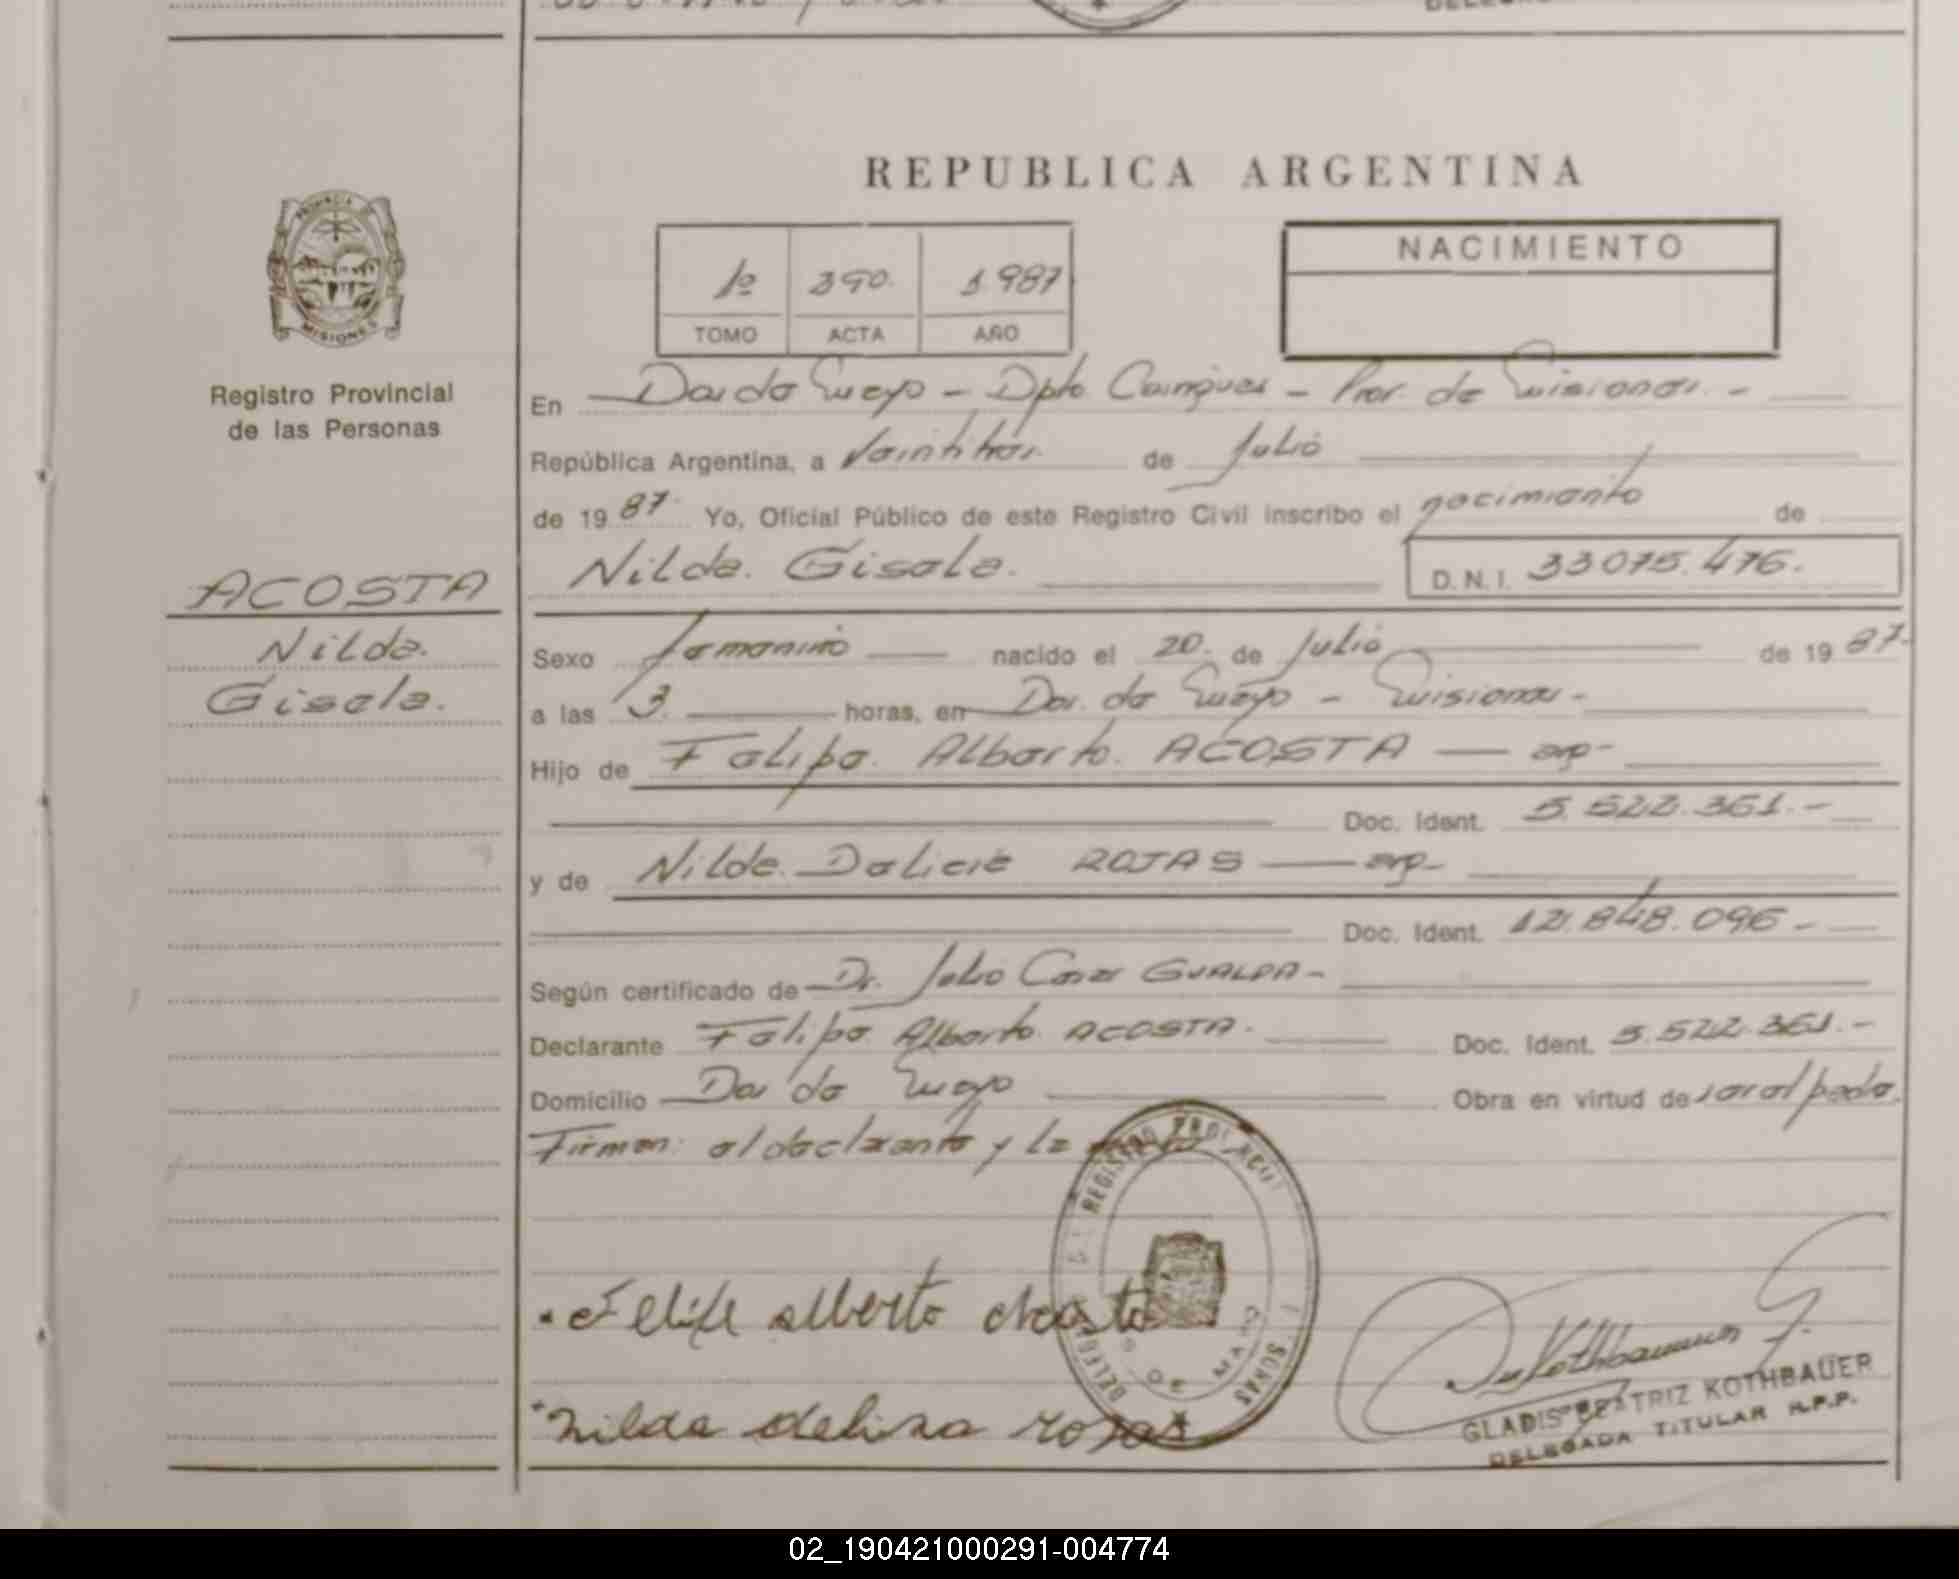 REPUBLICA ARGENTINA
PROVINCIA DE
MISIONES
Registro Provincial
de las Personas
1º 390. 1987
TOMO ACTA AÑO
NACIMIENTO
En Dos de Mayo - Dpto Cainguas - Prov. de Misiones. -
República Argentina, a Veintitres. de Julio
de 1987. Yo, Oficial Público de este Registro Civil inscribo el nacimiento de
ACOSTA
Nilda. Gisela. D.N.I. 33075.476.
Nilda.
Gisela.
Sexo femenino nacido el 20. de Julio de 1987.
a las 3. horas, en Dos. de Mayo - Misiones -
Hijo de Felipe. Alberto. ACOSTA — arg-
Doc. Ident. 5.522.361.-
y de Nilda. Delicia ROJAS — arg-
Doc. Ident. 12.848.096-
Según certificado de Dr. Julio Cesar GUALDA-
Declarante Felipe Alberto ACOSTA. Doc. Ident. 5.522.361.-
Domicilio Dos de Mayo Obra en virtud de
Firman: el declarante y la
REGISTRO PROVINCIAL
DE MAYO
Felipe alberto acosta
Nilda delisia rojas
GLADIS BEATRIZ KOTHBAUER
DELEGADA TITULAR R.P.P.
02_190421000291-004774